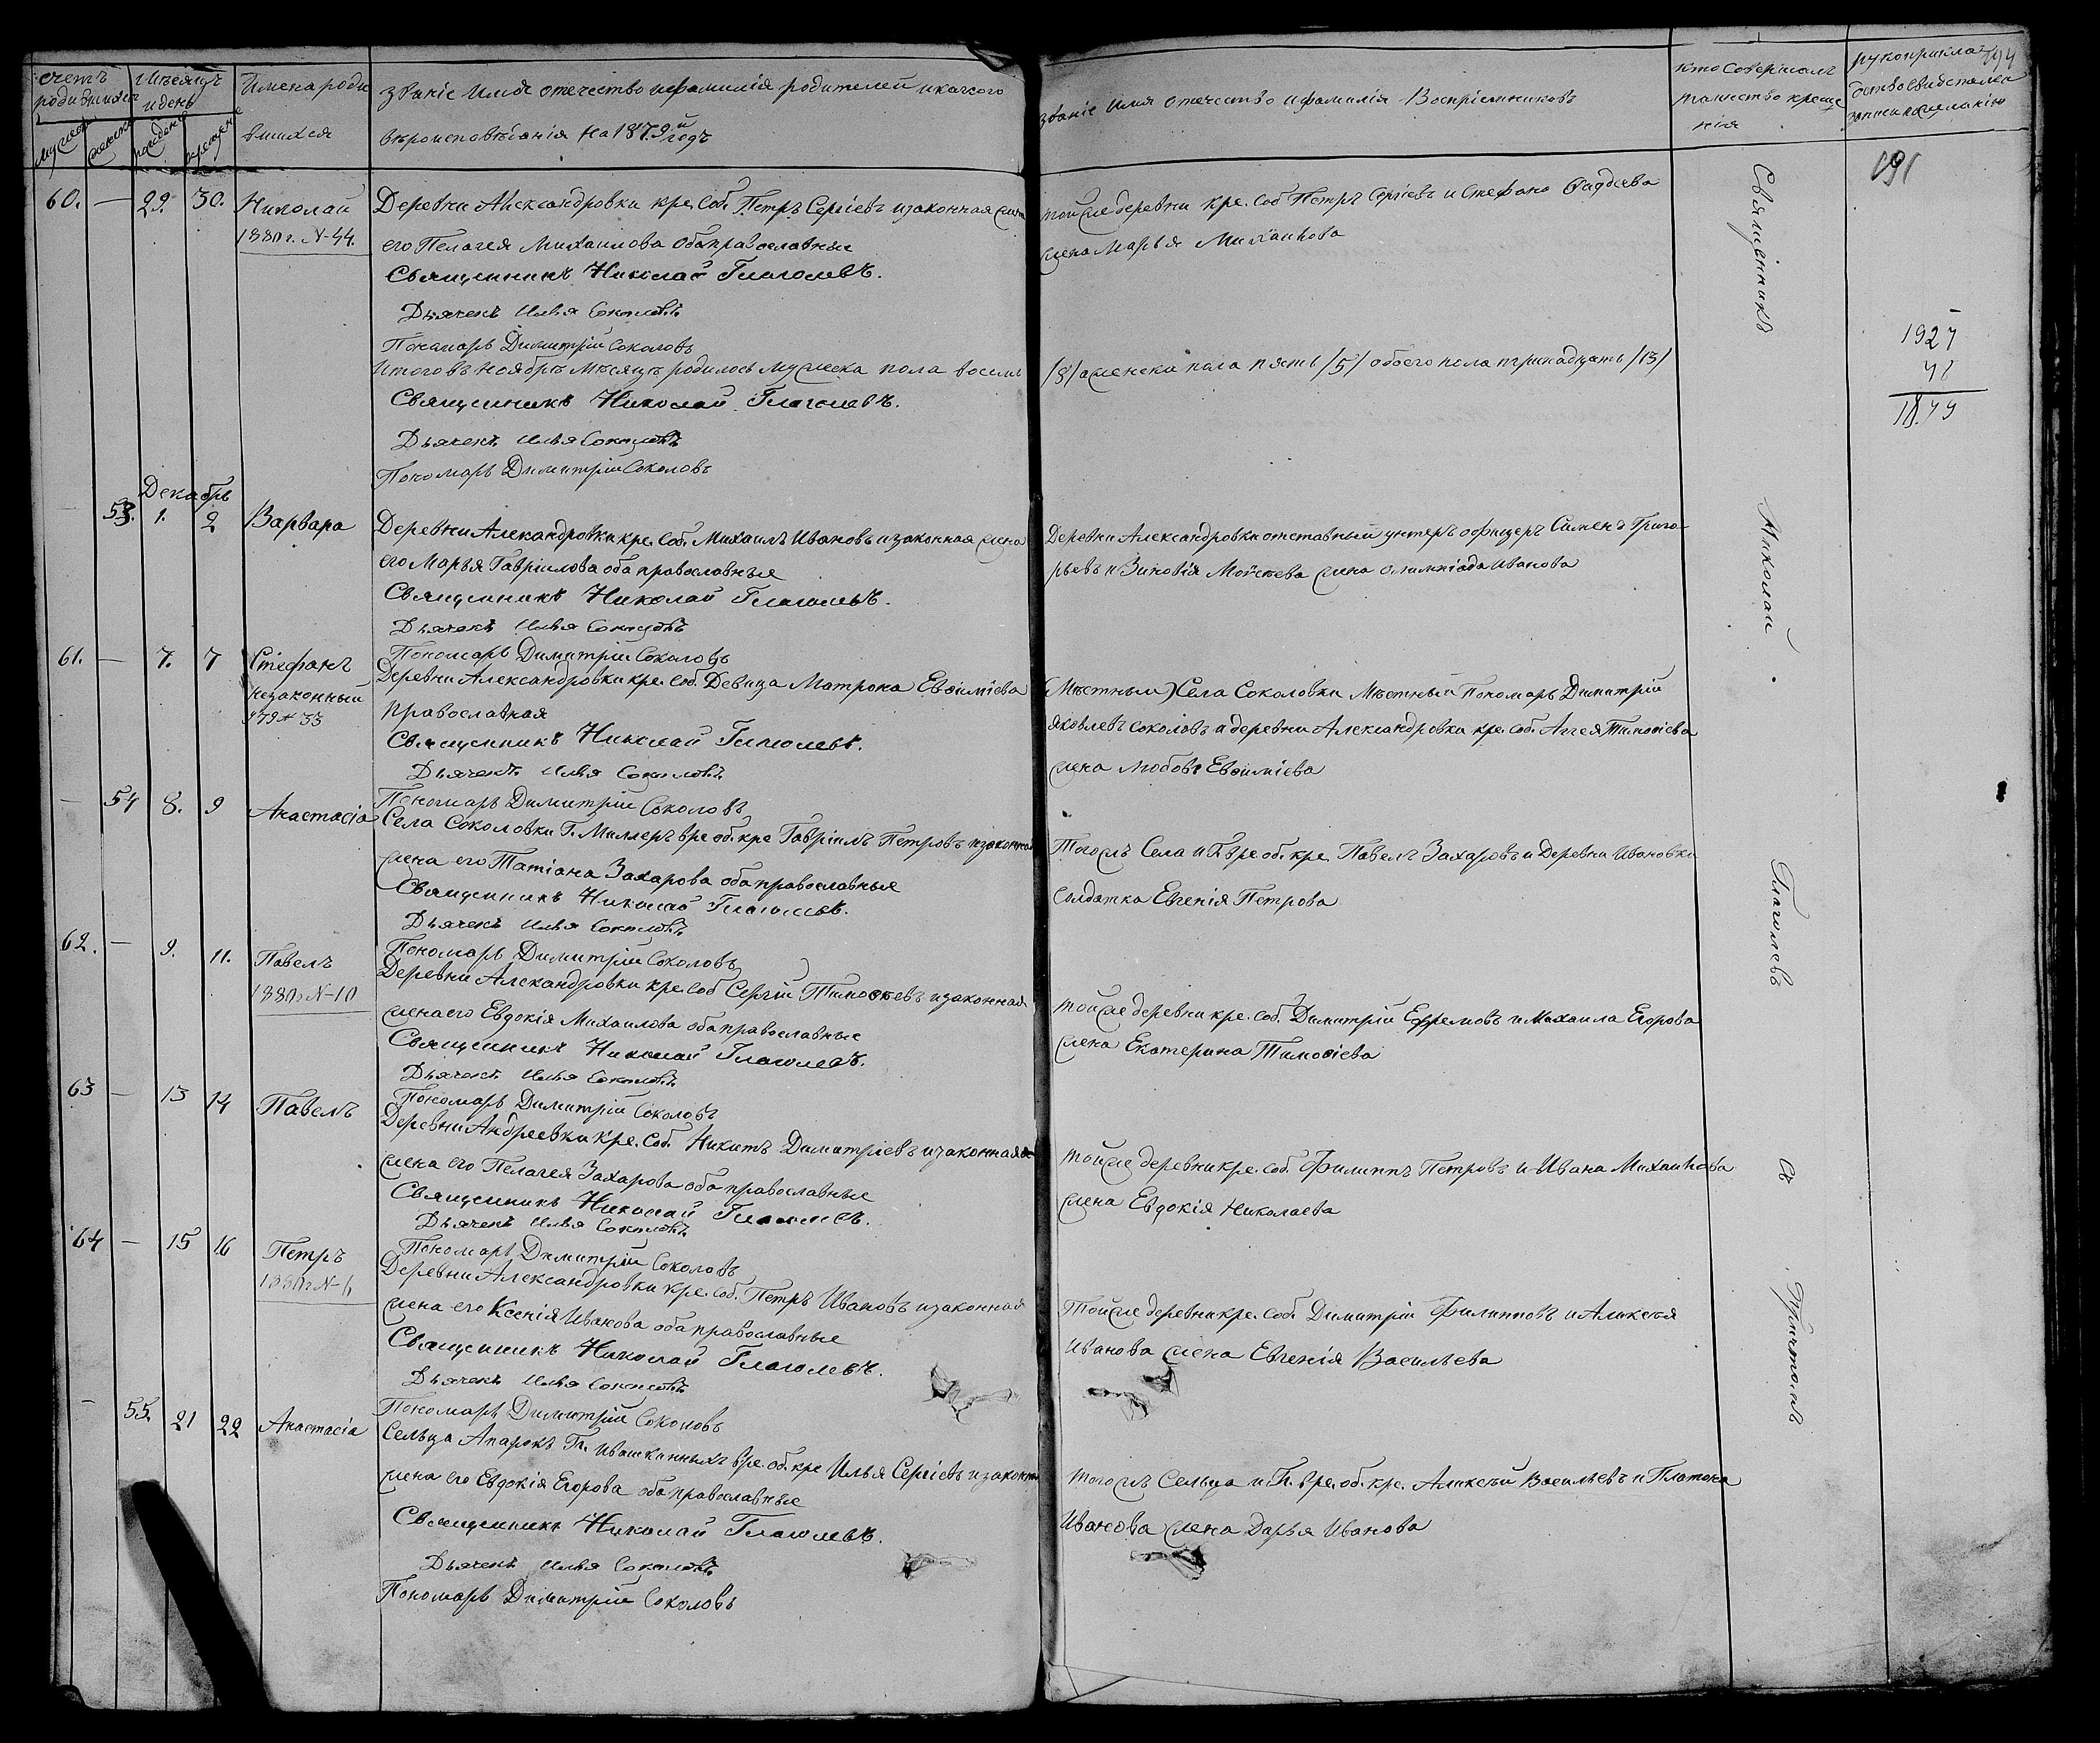 счетъ родившихся
Мѣсяцъ и день
Имена роди
вшихся
званіе имя отечество и фамилія родителей и какого
вѣроисповѣданія На 1879й годъ
мужеск
женска
рожден
крещен
званіе имя отечество и фамилія Воспріемниковъ
кто совершалъ
таинство креще
нія
рукоприкла
дство свидѣтелей
записи по желанію
194
191
60. — 29. 30. Николай
1880 г. N-44.
Деревни Александровки кре. соб. Петръ Сергіевъ и законная жена
его Пелагея Михаилова оба православные
Священникъ Николай Глаголевъ.
Дьячекъ Илья Соколовъ
Пономарь Димитрій Соколовъ
той же деревни кре. соб Петръ Сергіевъ и Стефана Фаддеева
жена Марья Михайлова
Итого въ Ноябрѣ Мѣсяцѣ родилось мужеска пола восемь /8/ а женска пола пять /5/ обоего пола тринадцать /13/
Священникъ Николай Глаголевъ.
Дьячекъ Илья Соколовъ
Пономарь Димитрій Соколовъ
1927
1879
Декабрь
53. 1. 2 Варвара
Деревни Александровки кре. соб. Михаилъ Ивановъ и законная жена
его Марья Гавріилова оба православные
Священникъ Николай Глаголевъ.
Дьячекъ Илья Соколовъ
Пономарь Димитрій Соколовъ
Деревни Александровки отставный унтеръ офицеръ Сименъ Григо-
рьевъ и Зиновія Моисеева жена Олимпіада Иванова
61. — 7. 7 Стефанъ
незаконный
Деревни Александровки кре. соб. Девица Матрона Евѳиміева
Православная
Священникъ Николай Глаголевъ.
Дьячекъ Илья Соколовъ
Пономарь Димитрій Соколовъ
(Мѣстный) Села Соколовки Мѣстный Пономарь Димитрій
Яковлевъ Соколовъ и деревни Александровки кре. соб. Аггея Тимоѳіева
жена Любовь Евѳиміева
— 54 8. 9 Анастасія
Села Соколовки Г. Миллеръ вре. об. кре Гавріилъ Петровъ и законная
жена его Татіана Захарова оба православные
Священникъ Николай Глаголевъ.
Дьячекъ Илья Соколовъ
Пономарь Димитрій Соколовъ
Того жъ Села и Г. вре. об. кре. Павелъ Захаровъ и Деревни Ивановки
солдатка Евгенія Петрова
62. — 9. 11. Павелъ
1880 г N-10
Деревни Александровки кре. соб Сергій Тимоѳеевъ и законная
жена его Евдокія Михаилова оба православные
Священникъ Николай Глаголевъ.
Дьячекъ Илья Соколовъ
Пономарь Димитрій Соколовъ
той же деревни кре. соб. Димитрій Ефремовъ и Михаила Егорова
жена Екатерина Тимоѳіева
63 — 13 14 Павелъ
Деревни Андреевки кре. соб. Никитъ Димитріевъ и законная
жена его Пелагея Захарова оба православные
Священникъ Николай Глаголевъ.
Дьячекъ Илья Соколовъ
Пономарь Димитрій Соколовъ
той же деревни кре. соб. Филиппъ Петровъ и Ивана Михайлова
жена Евдокія Николаева
64 — 15 16 Петръ
1880 г N-6
Деревни Александровки кре. соб. Петръ Ивановъ и законная
жена его Ксенія Иванова оба православные
Священникъ Николай Глаголевъ.
Дьячекъ Илья Соколовъ
Пономарь Димитрій Соколовъ
Той же деревни кре. соб. Димитрій Филипповъ и Алексѣя
Иванова жена Евгенія Васильева
— 55. 21 22 Анастасія
Сельца Апарокъ Гг. Ивашкиныхъ вре. об. кре Илья Сергіевъ и законна
жена его Евдокія Егорова оба православные
Священникъ Николай Глаголевъ.
Дьячекъ Илья Соколовъ
Пономарь Димитрій Соколовъ
того жъ Сельца и Гг. вре. об. кре. Алексѣй Васильевъ и Платона
Иванова жена Дарья Иванова
Священникъ Николай Глаголевъ съ Причтомъ